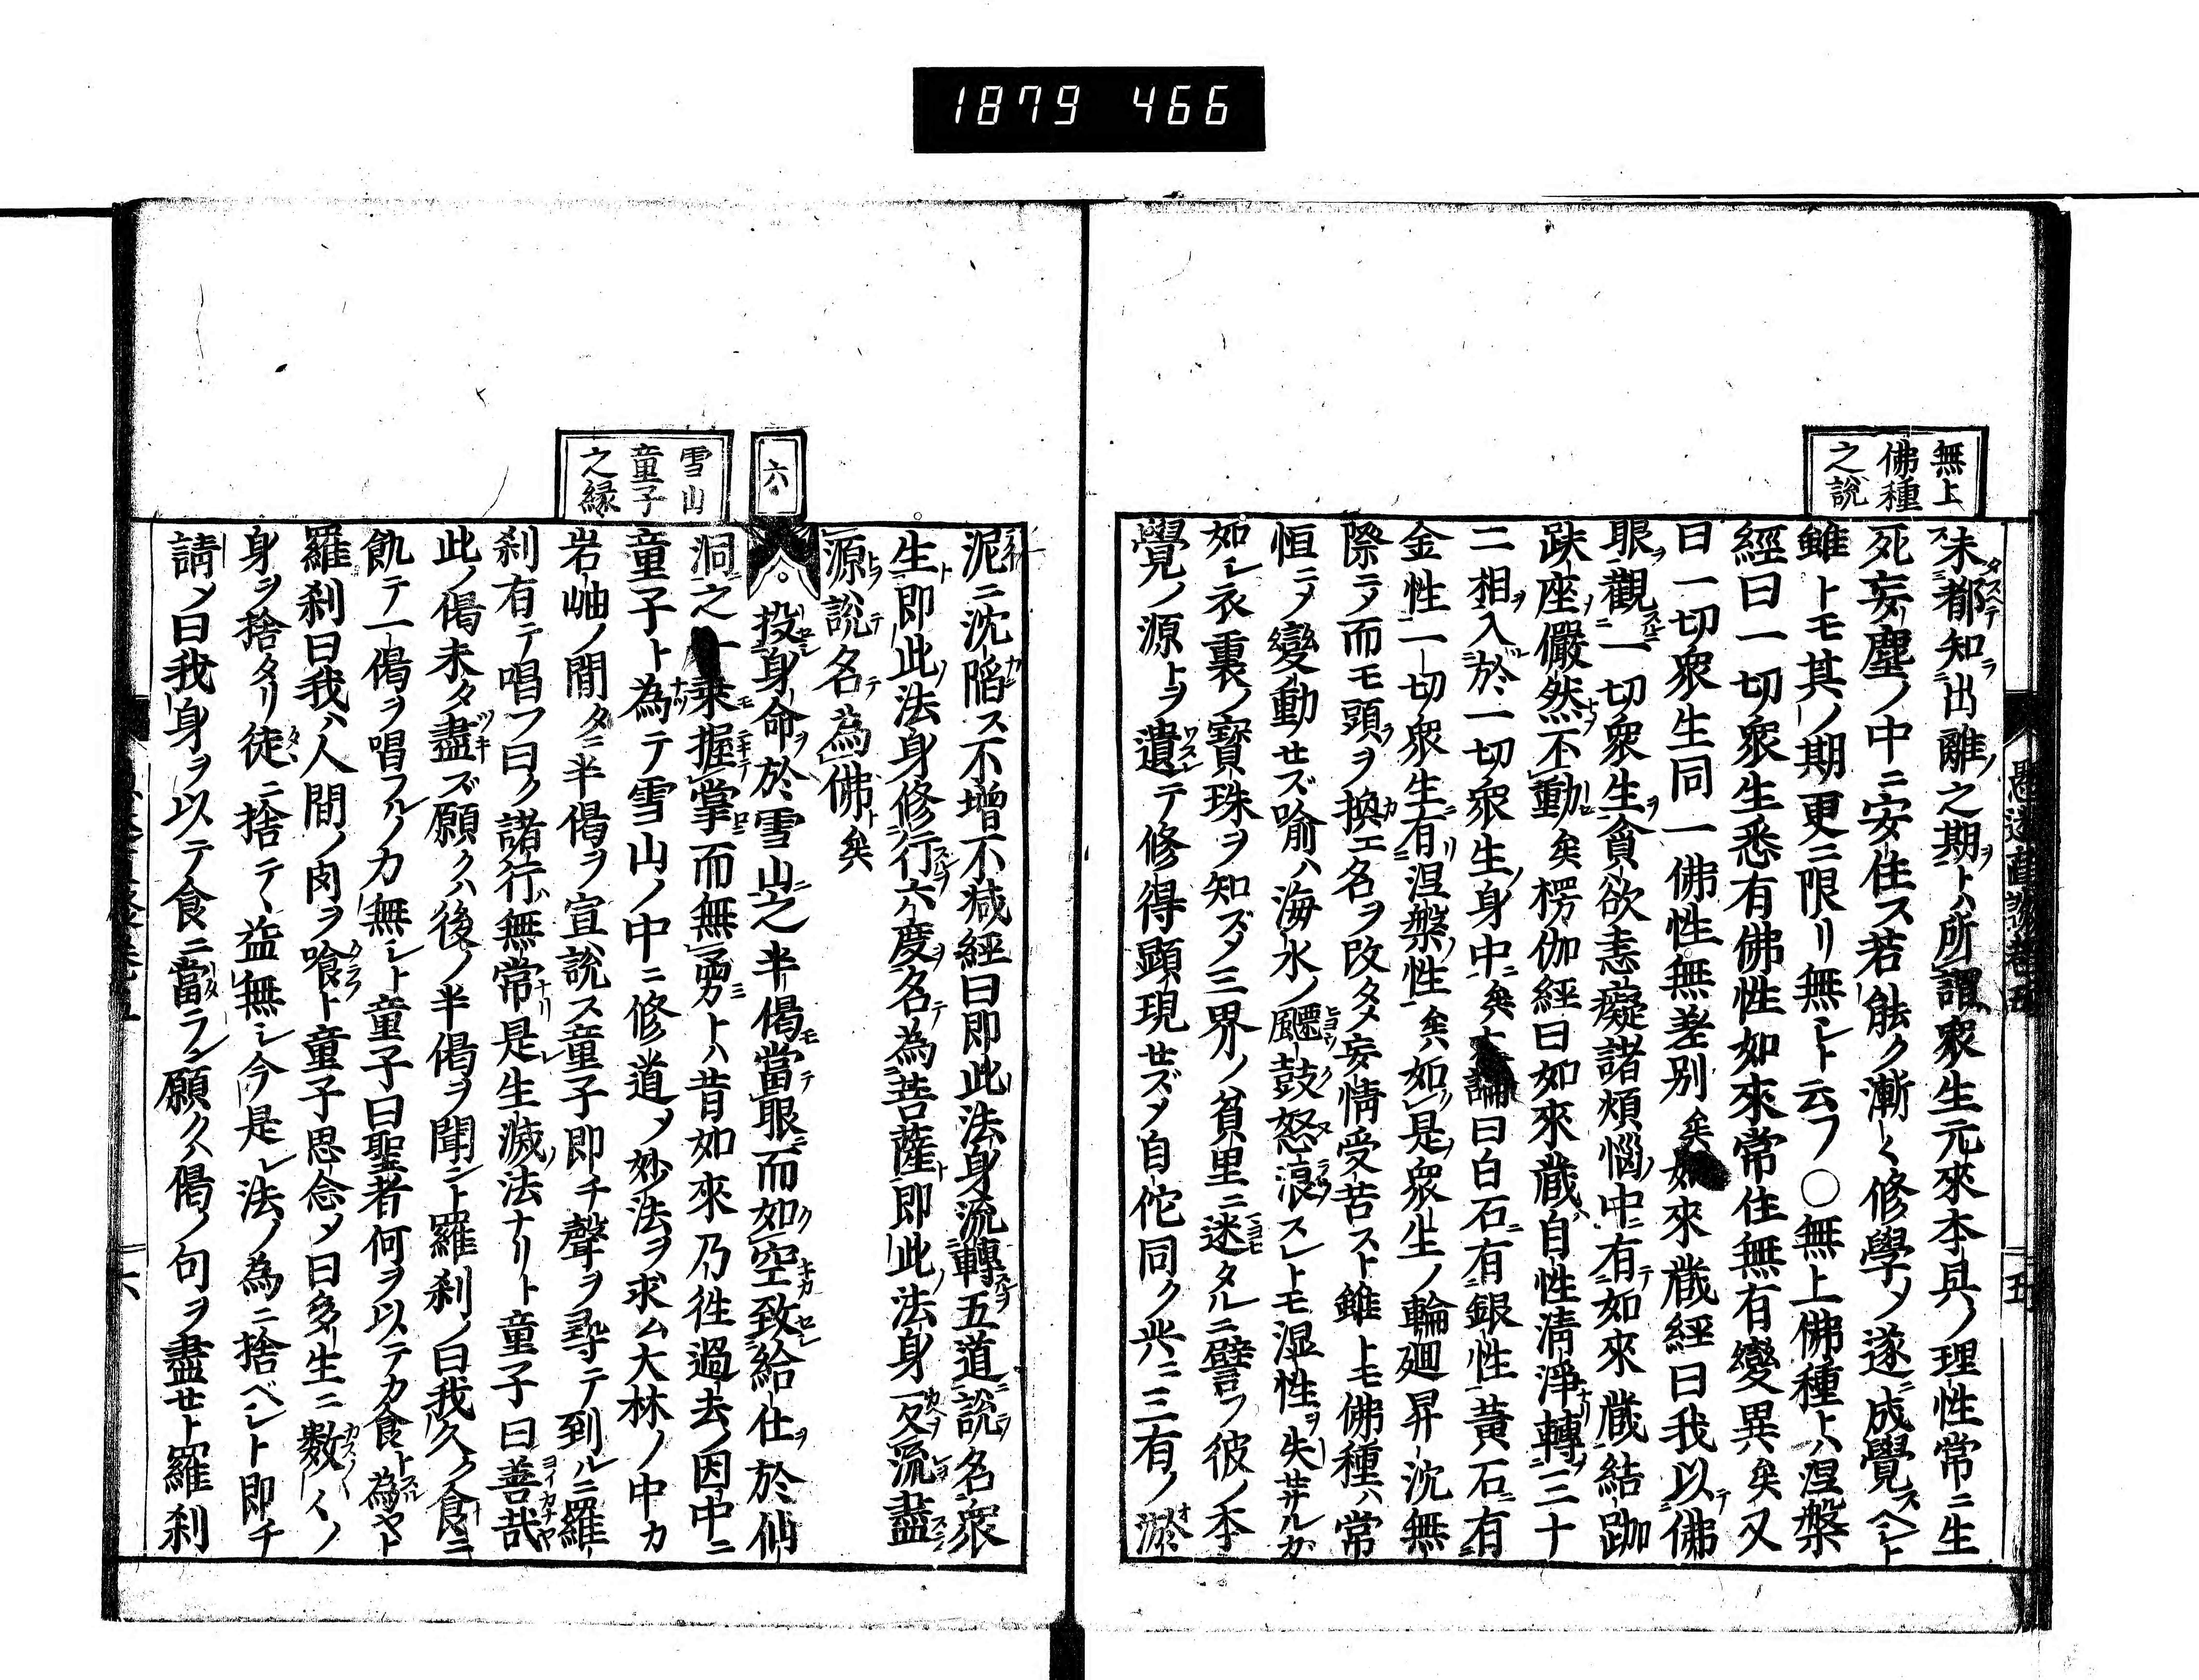 1879 466
無上
佛種
之說
未ス都タスベテ知ラ出離ノ之期ヲトハ所謂衆生元來本具ノ理性常ニ生
死妄塵ノ中ニ安住ス若シ能ク漸ク修學シテ遂ニ成覺スベシト
雖トモ其ノ期更ニ限リ無シト云フ○無上佛種トハ涅槃
經曰一切衆生悉有佛性如來常住無有變異矣又
曰一切衆生同一佛性無差別矣如來藏經曰我以テ佛
眼ヲ觀スルニ一切衆生ヲ貪欲恚癡諸煩惱ノ中ニ有テ如來藏結跏
趺座ヲ儼然トシテ不動矣楞伽經曰如來藏ハ自性清淨ナリ轉ヲ三十
二相ヲ入ル於一切衆生ノ身中ニ矣論曰白石ニ有銀性黃石ニ有
金性一切衆生ニ有リ涅槃ノ性矣如是ノ衆生ノ輪廻昇沈無
際ニシテ而モ頭ヲ換カエ名ヲ改タメ妄情受苦スト雖トモ佛種ハ常
恒ニシテ變動セズ喩ハ海水ノ飃鼓怒浪スレトモ湿性ヲ失サルカ
如シ衣裏ノ寶珠ヲ知ズシテ三界ノ貧里ニ迷タルニ譬フ彼ノ本
覺ノ源トヲ遺ワスレテ修得顯現セズシテ自佗同ク共ニ三有ノ淤オ
六
雪山
童子
之縁
泥ニ沈陷ス不増不減經曰即此法身流轉スルヲ五道ニ說ヲ名衆
生ト即此ノ法身修行スルヲ六度ヲ名テ為菩薩ト即此ノ法身反流盡スヲ
源ヲ說テ名テ為佛ト矣
投身命ヲ於雪山ニ之半偈モ當テ眼ニ而如ク空キカ致セシ給仕ヲ於仙
洞ニ之乗モ握ニキテ掌ニ而無勇ミトハ昔如來乃往過去ノ因中ニ
童子ト為ナツテ雪山ノ中ニ修道シテ妙法ヲ求ム大林ノ中カ
岩岫ノ間タニ半偈ヲ宣說ス童子即チ聲ヲ尋テ到ルニ羅
刹有テ唱フ曰ク諸行ハ無常ナリ是レ生滅ノ法ナリト童子曰善哉ヨイカナヤ
此ノ偈未タ盡ツキズ願クハ後ノ半偈ヲ聞ント羅刹ノ曰我久ク食ニ
飢テ一偈ヲ唱フルノ力無シト童子曰聖者何ヲ以テカ食ト為スルヤト
羅刹曰我ハ人間ノ肉ヲ喰クラフト童子思念シテ曰多生ニ數カズ〱ノ
身ヲ捨タリ徒タヽニ捨テヽ益無シ今是レ法ノ為ニ捨ベシト即チ
請シテ曰我身ヲ以テ食ニ當アタラン願クハ偈ノ句ヲ盡セト羅刹